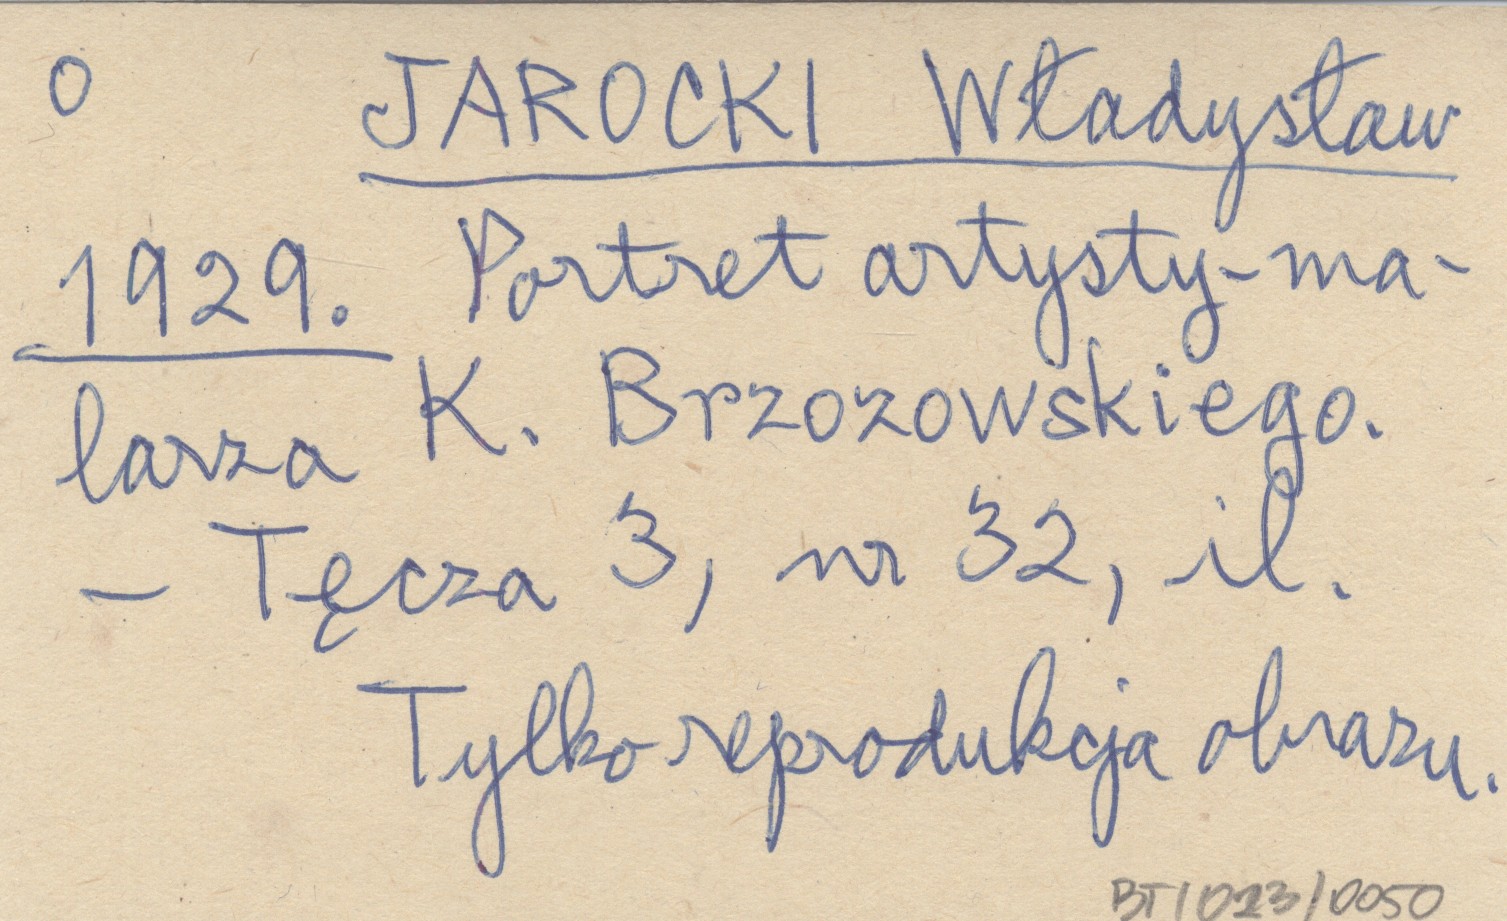 o JAROCKI Władysław
1929. Portret artysty-ma-
larza K. Brzozowskiego.
– Tęcza 3, nr 32, il.
Tylko reprodukcja obrazu.
BT/023/0050